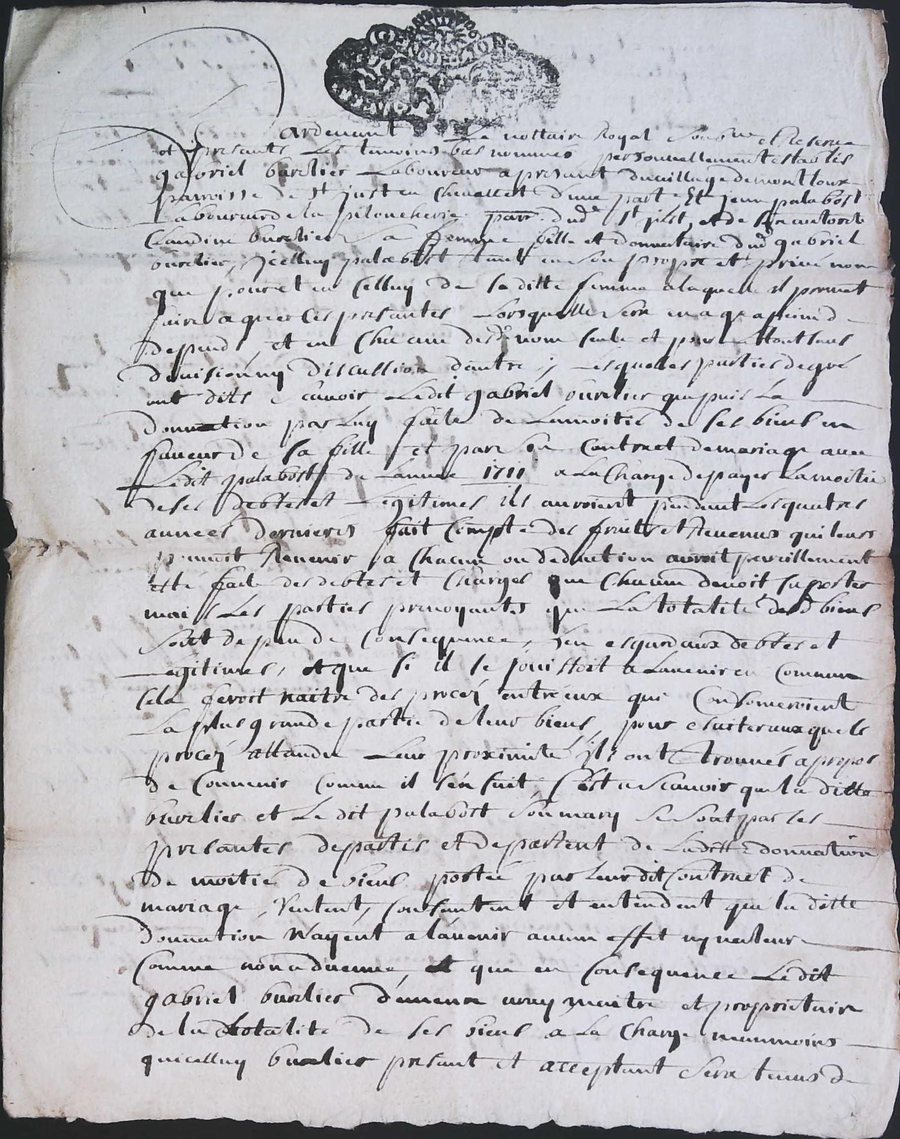 Pardevant Le nottaire Royal soubsné et reservé
et presants Les temoins bas nommés personnellement establis
gabriel burelier Laboureur a present du village de montloux
parroisse de st just en chevallet d'une part Et jean palabost
Laboureur de la piloncherie parr. dud. st just, et de
Claudine burelier sa femme fille et donnataire dud. gabriel
burelier, Jcelluy palabost tant en son propre et privé nom
que pour et en Celluy de la ditte femme a laquelle il promet
faire agreer ces presantes Lorsquelle sera a peine de
depends et en Chacune desd. nom seule et pour le tout sans
division ny discussion d'autre, Lesquelles parties de gré
ont dits Scavoir Ledit gabriel burelier que puis la
donnation par Luy faite de La moitié de ses biens en
faveur de sa fille et par son Contract de mariage avec
Ledit palabost de Lannée 1711 a la Charge de payer La moitié
de ses debtes et Legitimes ils auroient pendant Les quatres
années dernieres fait Compte des fruits et Revenus qui leurs
pouvoit Revenir a Chacun ou deduction auroit pareillement
esté faite des debtes et Charges que Chacun devoit suporter
mais Les parties prevoyants que La totalité desd. biens
soit de peu de Consequence, Heu esgard aux debtes et
Legitimes, et que si il se jouissoit a Lavenir en Commun
sela feroit naitre des procez entreux qui Consomeroient
La plus grande partie de leur biens, pour esviter auxquels
procez attandu Leur proximité ils ont trouvés a propos
de Convenir Comme il s'en suit C'est a Scavoir que la ditte
burelier et Le dit palabost son mary se sont par ses
presantes departis et departent de Laditte donnation
de moitié de biens portée par Leur dit Contract de
mariage, Veulent, Consentent et entendent que la ditte
donnation N'ayent a l'avenir aucun effet ny valleur
Comme non advenue, et que en Consequence Ledit
gabriel burelier demeure vray maitre et proprietaire
de la totalité de ses biens a La Charge neanmoins
quicelluy burelier present et acceptant sera tenus de